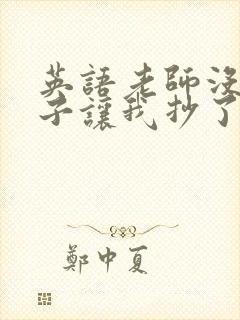 英語老師沒
子讓我抄了
鄭中夏